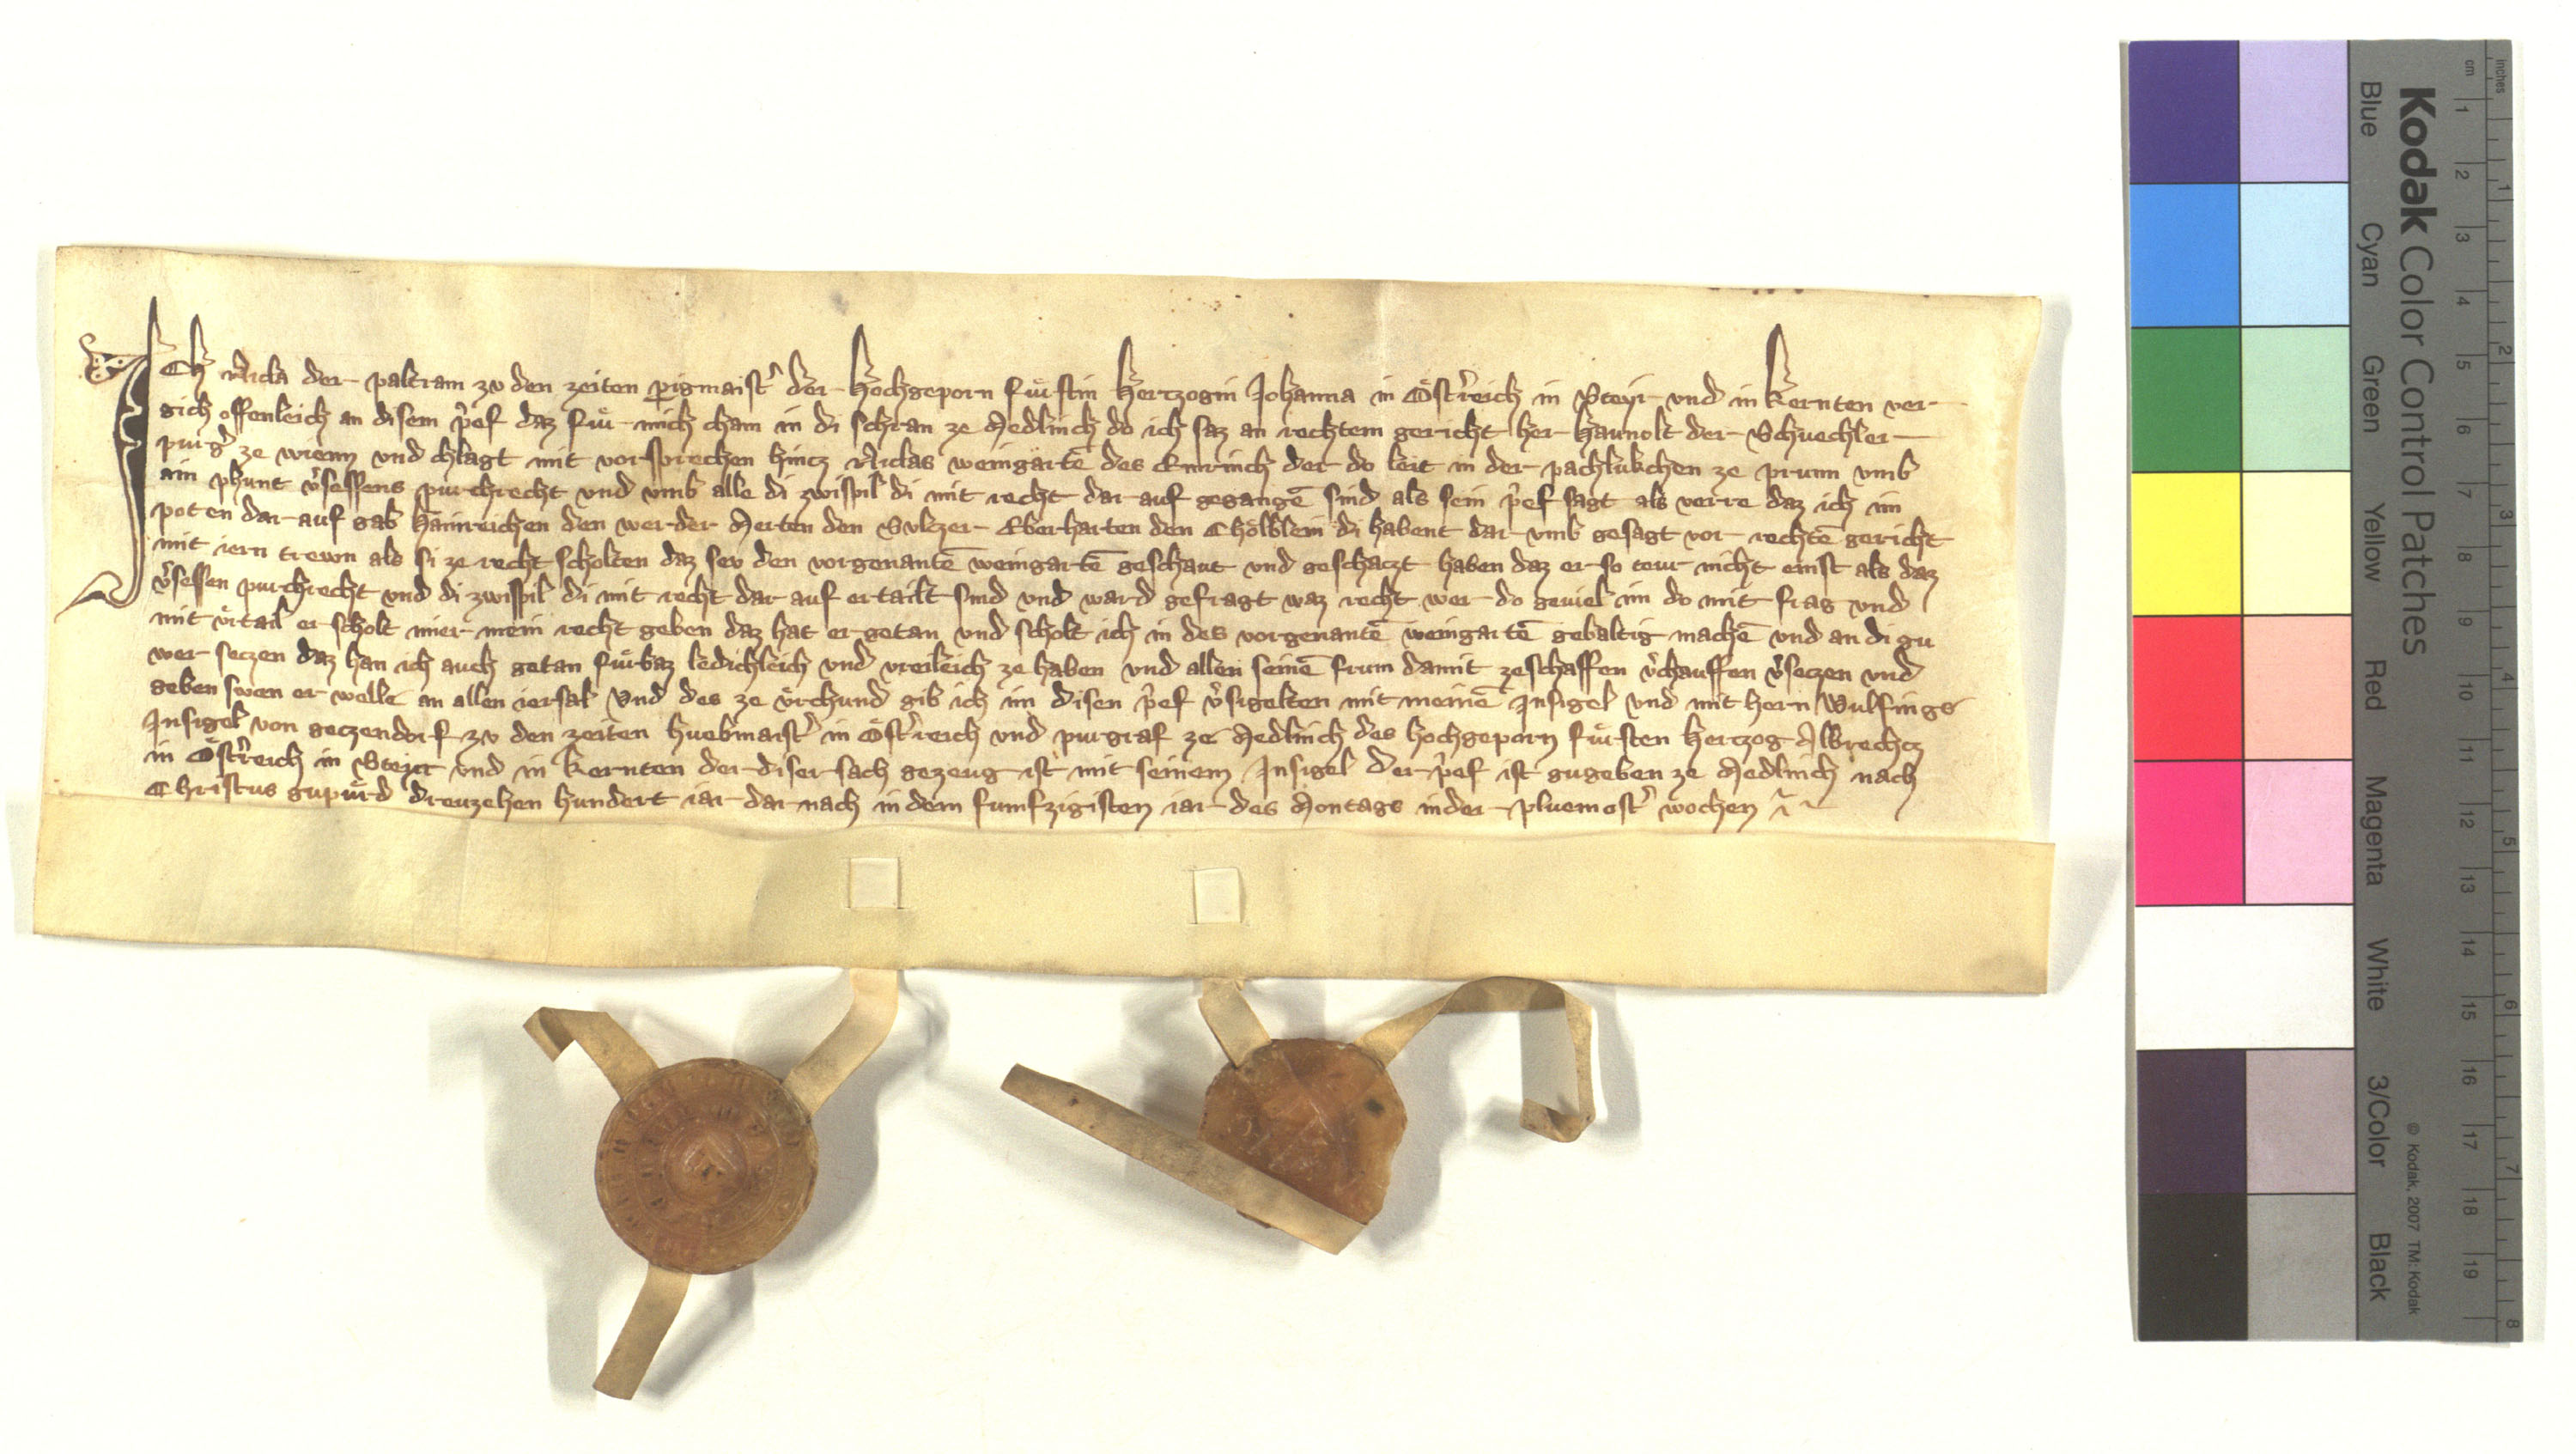 ICh Nicla der paltram zv den zeiten pgmaistˀ der Hochgeporn fuͤrstin Hertzogin Johanna in Ostˀreich in Steyr vnd in Kernten ver
gich offenleich an disem pˀef daz fuͤr mich cham in di schran ze Medlinch do ich saz an rechtem gericht her Haunolt der Schuechler
purgˀ ze wienn vnd chlagt mit vorsprechen hincz Niclas weingartē des Emrinch der do leit in der pachlukchen ze prunn vmb
ain phunt vˀsessens purchrecht vnd vmb alle di zwispil di mit recht dar auf gegangē sind als sein pˀef sagt als verre daz ich im
poten dar auf gab Hainreichen den werder Merten den Sulczer Eberharten den Choͤlblein di habent dar vmb gesagt vor rechtē gericht
mit iern trewn als si ze recht scholten daz sev den vorgenantē weingartē geschaut vnd geschaczt haben daz er so teur nicht enist als daz
vˀsessen purchrecht vnd di zwispil di mit recht dar auf ertailt sind vnd ward gefragt waz recht wer do geviel im do mit frag vnd
mit vrtail er scholt mier mein recht geben daz hat er getan vnd scholt ich in des vorgenantē weingartē gebaltig machē vnd an di gu
wer seczen daz han ich auch getan fuͤrbaz ledichleich vnd vreileich ze haben vnd allen seinē frum damit zeschaffen vˀchauffen vˀseczen vnd
geben swen er welle an allen iersal Vnd des ze vrchund gib ich im disen pˀef vˀsigelten mit meinē Insigel vnd mit hern Wulfings
Insigel von geczendorf zv den zeiten huebmaistˀ in Ostˀreich vnd purgraf ze Medlinch des hochgeporn fuͤrsten Hertzog Albrechcz
in Ostˀreich in Steyr vnd in Kernten der diser sach gezeug ist mit seinem Insigel Der pˀef ist gugeben ze Medlinch nach
Christus gupuͤrd dreuzehen hundert iar dar nach in dem fumfzigisten iar des Montags in der pluemostˀ wochen
Kodak Color Control Patches
Blue Cyan Green Yellow Red Magenta White 3/Color Black
© Kodak, 2007 TM: Kodak
inches 1 2 3 4 5 6 7 8
cm 1 2 3 4 5 6 7 8 9 10 11 12 13 14 15 16 17 18 19